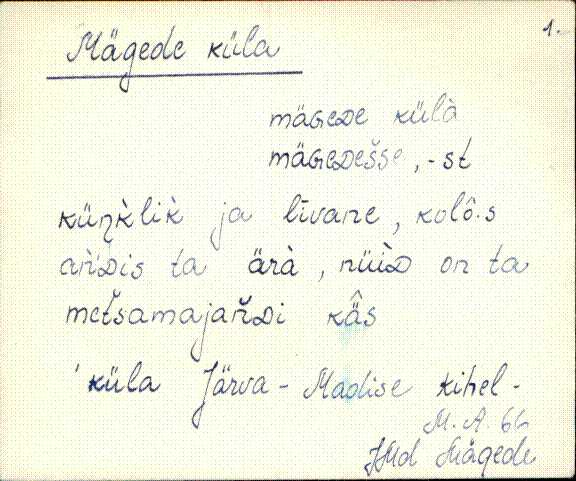 1.
Mägede küla
mäGeDe külà
mäGeDešse, -st
küŋk̀lik̀ ja līvane, kolô·s
ańDis ta ärà, nüüD on ta
metšamajańDi kä̂s
'küla Järva-Madise kihel-
M. A. 66
JMd Mägede